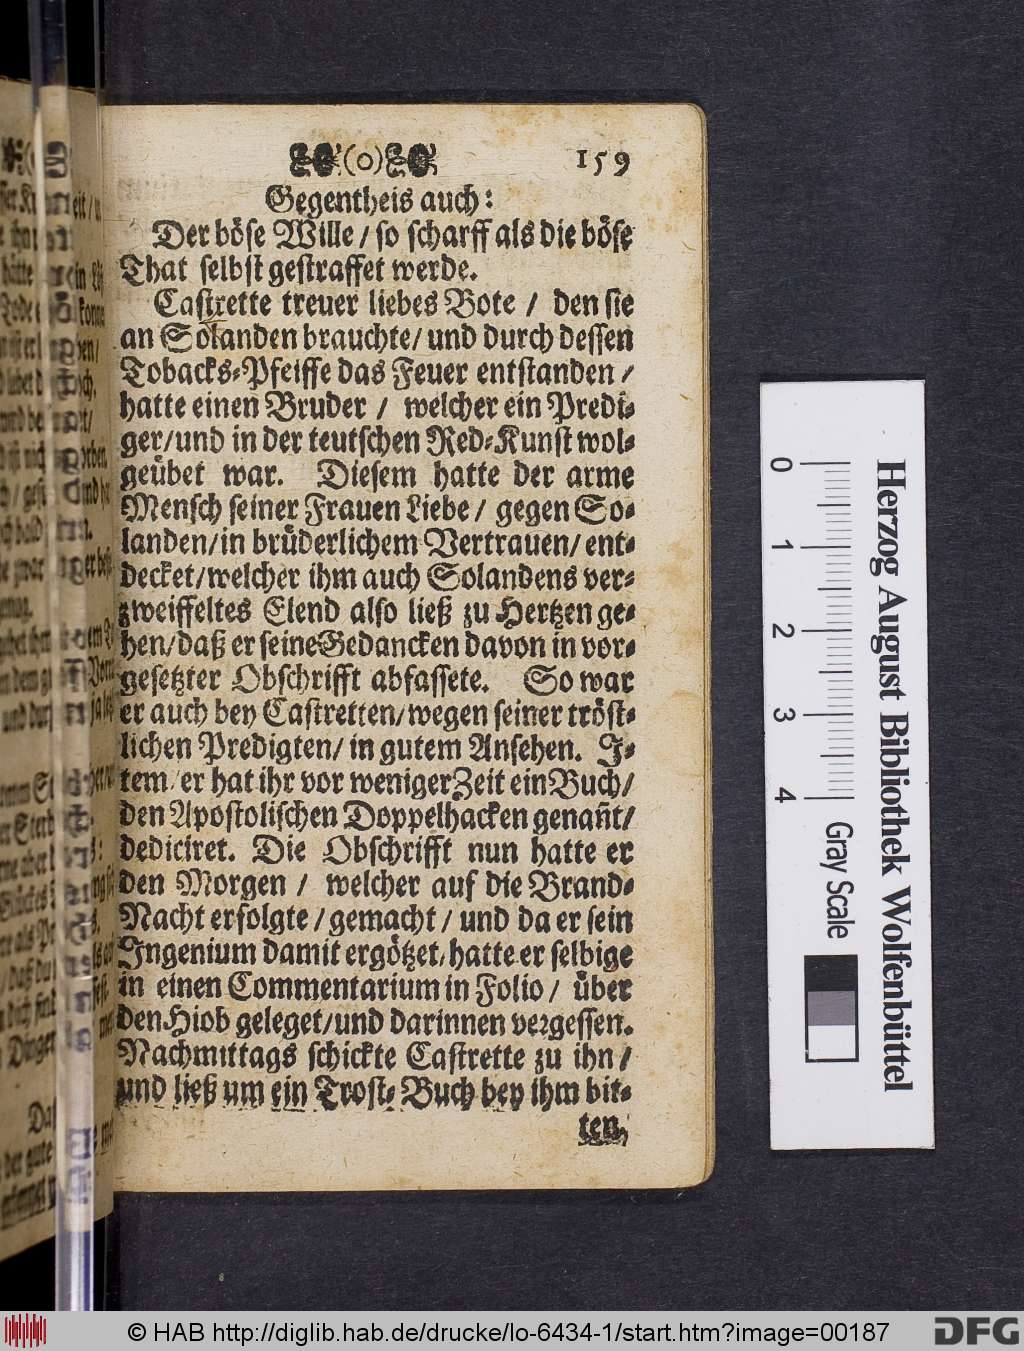 (o) 159
Gegentheis auch:
Der böse Wille / so scharff als die böse
That selbst gestraffet werde.
Castrette treuer liebes Bote / den sie
an Solanden brauchte / und durch dessen
Tobacks-Pfeiffe das Feuer entstanden /
hatte einen Bruder / welcher ein Predi-
ger / und in der teutschen Red-Kunst wol-
geübet war. Diesem hatte der arme
Mensch seiner Frauen Liebe / gegen So-
landen / in brüderlichem Vertrauen / ent-
decket / welcher ihm auch Solandens ver-
zweiffeltes Elend also ließ zu Hertzen ge-
hen / daß er seine Gedancken davon in vor-
gesetzter Obschrifft abfassete. So war
er auch bey Castretten / wegen seiner tröst-
lichen Predigten / in gutem Ansehen. I-
tem / er hat ihr vor weniger Zeit ein Buch /
den Apostolischen Doppelhacken genañt /
dediciret. Die Obschrifft nun hatte er
den Morgen / welcher auf die Brand-
Nacht erfolgte / gemacht / und da er sein
Ingenium damit ergötzet, hatte er selbige
in einen Commentarium in Folio / über
den Hiob geleget / und darinnen vergessen.
Nachmittags schickte Castrette zu ihn /
und ließ um ein Trost-Buch bey ihm bit-
ten,
0 1 2 3 4
Gray Scale
Herzog August Bibliothek Wolfenbüttel
© HAB http://diglib.hab.de/drucke/lo-6434-1/start.htm?image=00187
DFG